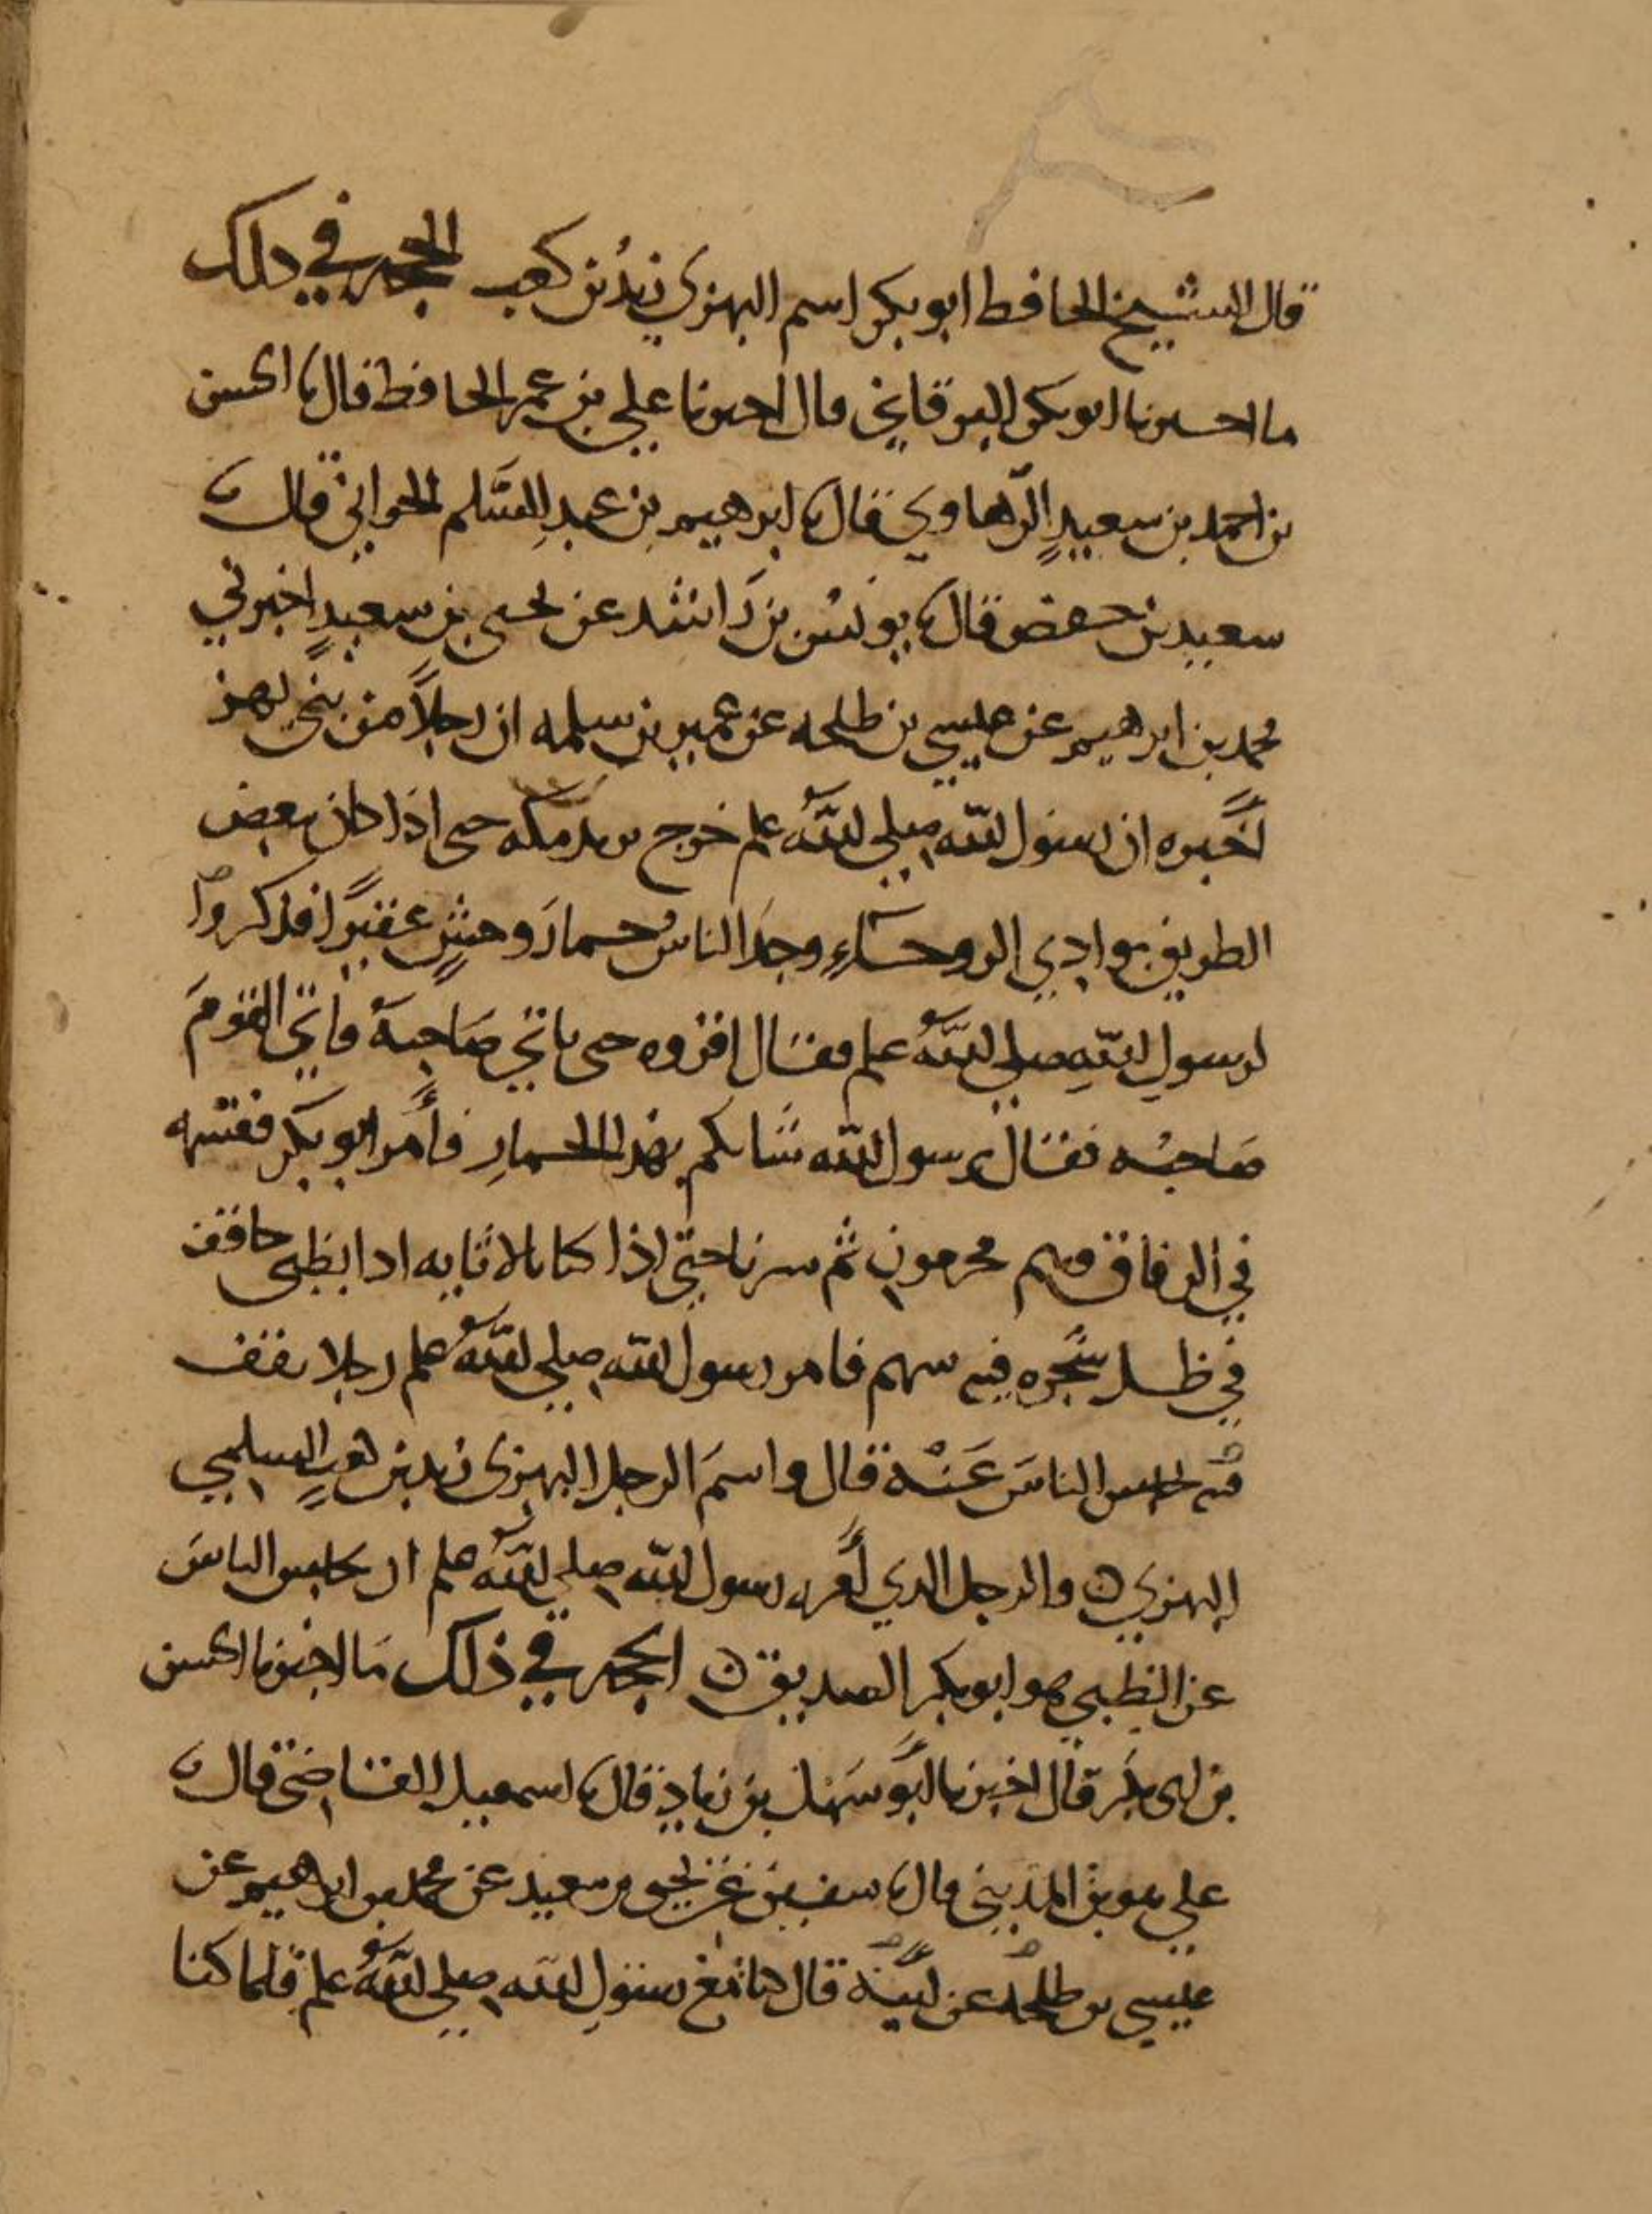 قال الشيخ الحافظ ابو بكر اسم البهزي زيد بن كعب الحجه في ذلك
ما اخبرنا ابو بكر البرقاني قال اخبرنا علي بن عمر الحافظ قال نا الحسن
بن احمد بن سعيد الرهاوي قال نا ابرهيم بن عبد السلم الحراني قال نا
سعيد بن حفص قال نا يونس بن راشد عن يحيى بن سعيد اخبرني
محمد بن ابرهيم عن عيسي بن طلحه عن عمير بن سلمه ان رجلا من بني بهز
اخبره ان رسول الله صلي الله علم خرج يريد مكه حتى اذا كان ببعض
الطريق بوادي الروحاء وجد الناس حمار وحش عقيرا فذكروا
لرسول الله صلي الله علم فقال اقروه حتى ياتي صاحبه فاتي القوم
صاحبه فقال يرسول الله شانكم بهذا الحمار فأمر ابو بكر فقسمه
في الرفاق وهم محرمون ثم سرنا حتي اذا كنا بالاثايه اذا بظبي حاقف
في ظل شجره فيه سهم فامر رسول الله صلي الله علم رجلا يقف
فيه يحبس الناس عنه قال واسم الرجل البهزي زيد بن كعب السلمي
البهزي ن والرجل الذي أمره رسول الله صلي الله علم ان يحبس الناس
عن الظبي هو ابو بكر الصديق ن الحجه في ذلك ما اخبرنا الحسن
بن ابي بكر قال اخبرنا ابو سهل بن زياد قال نا اسمعيل القاضي قال نا
علي هو بن المديني قال نا سفين عن يحيى بن سعيد عن محمد بن ابرهيم عن
عيسي بن طلحه عن ابيه قال كنا مع رسول الله صلي الله علم فلما كنا